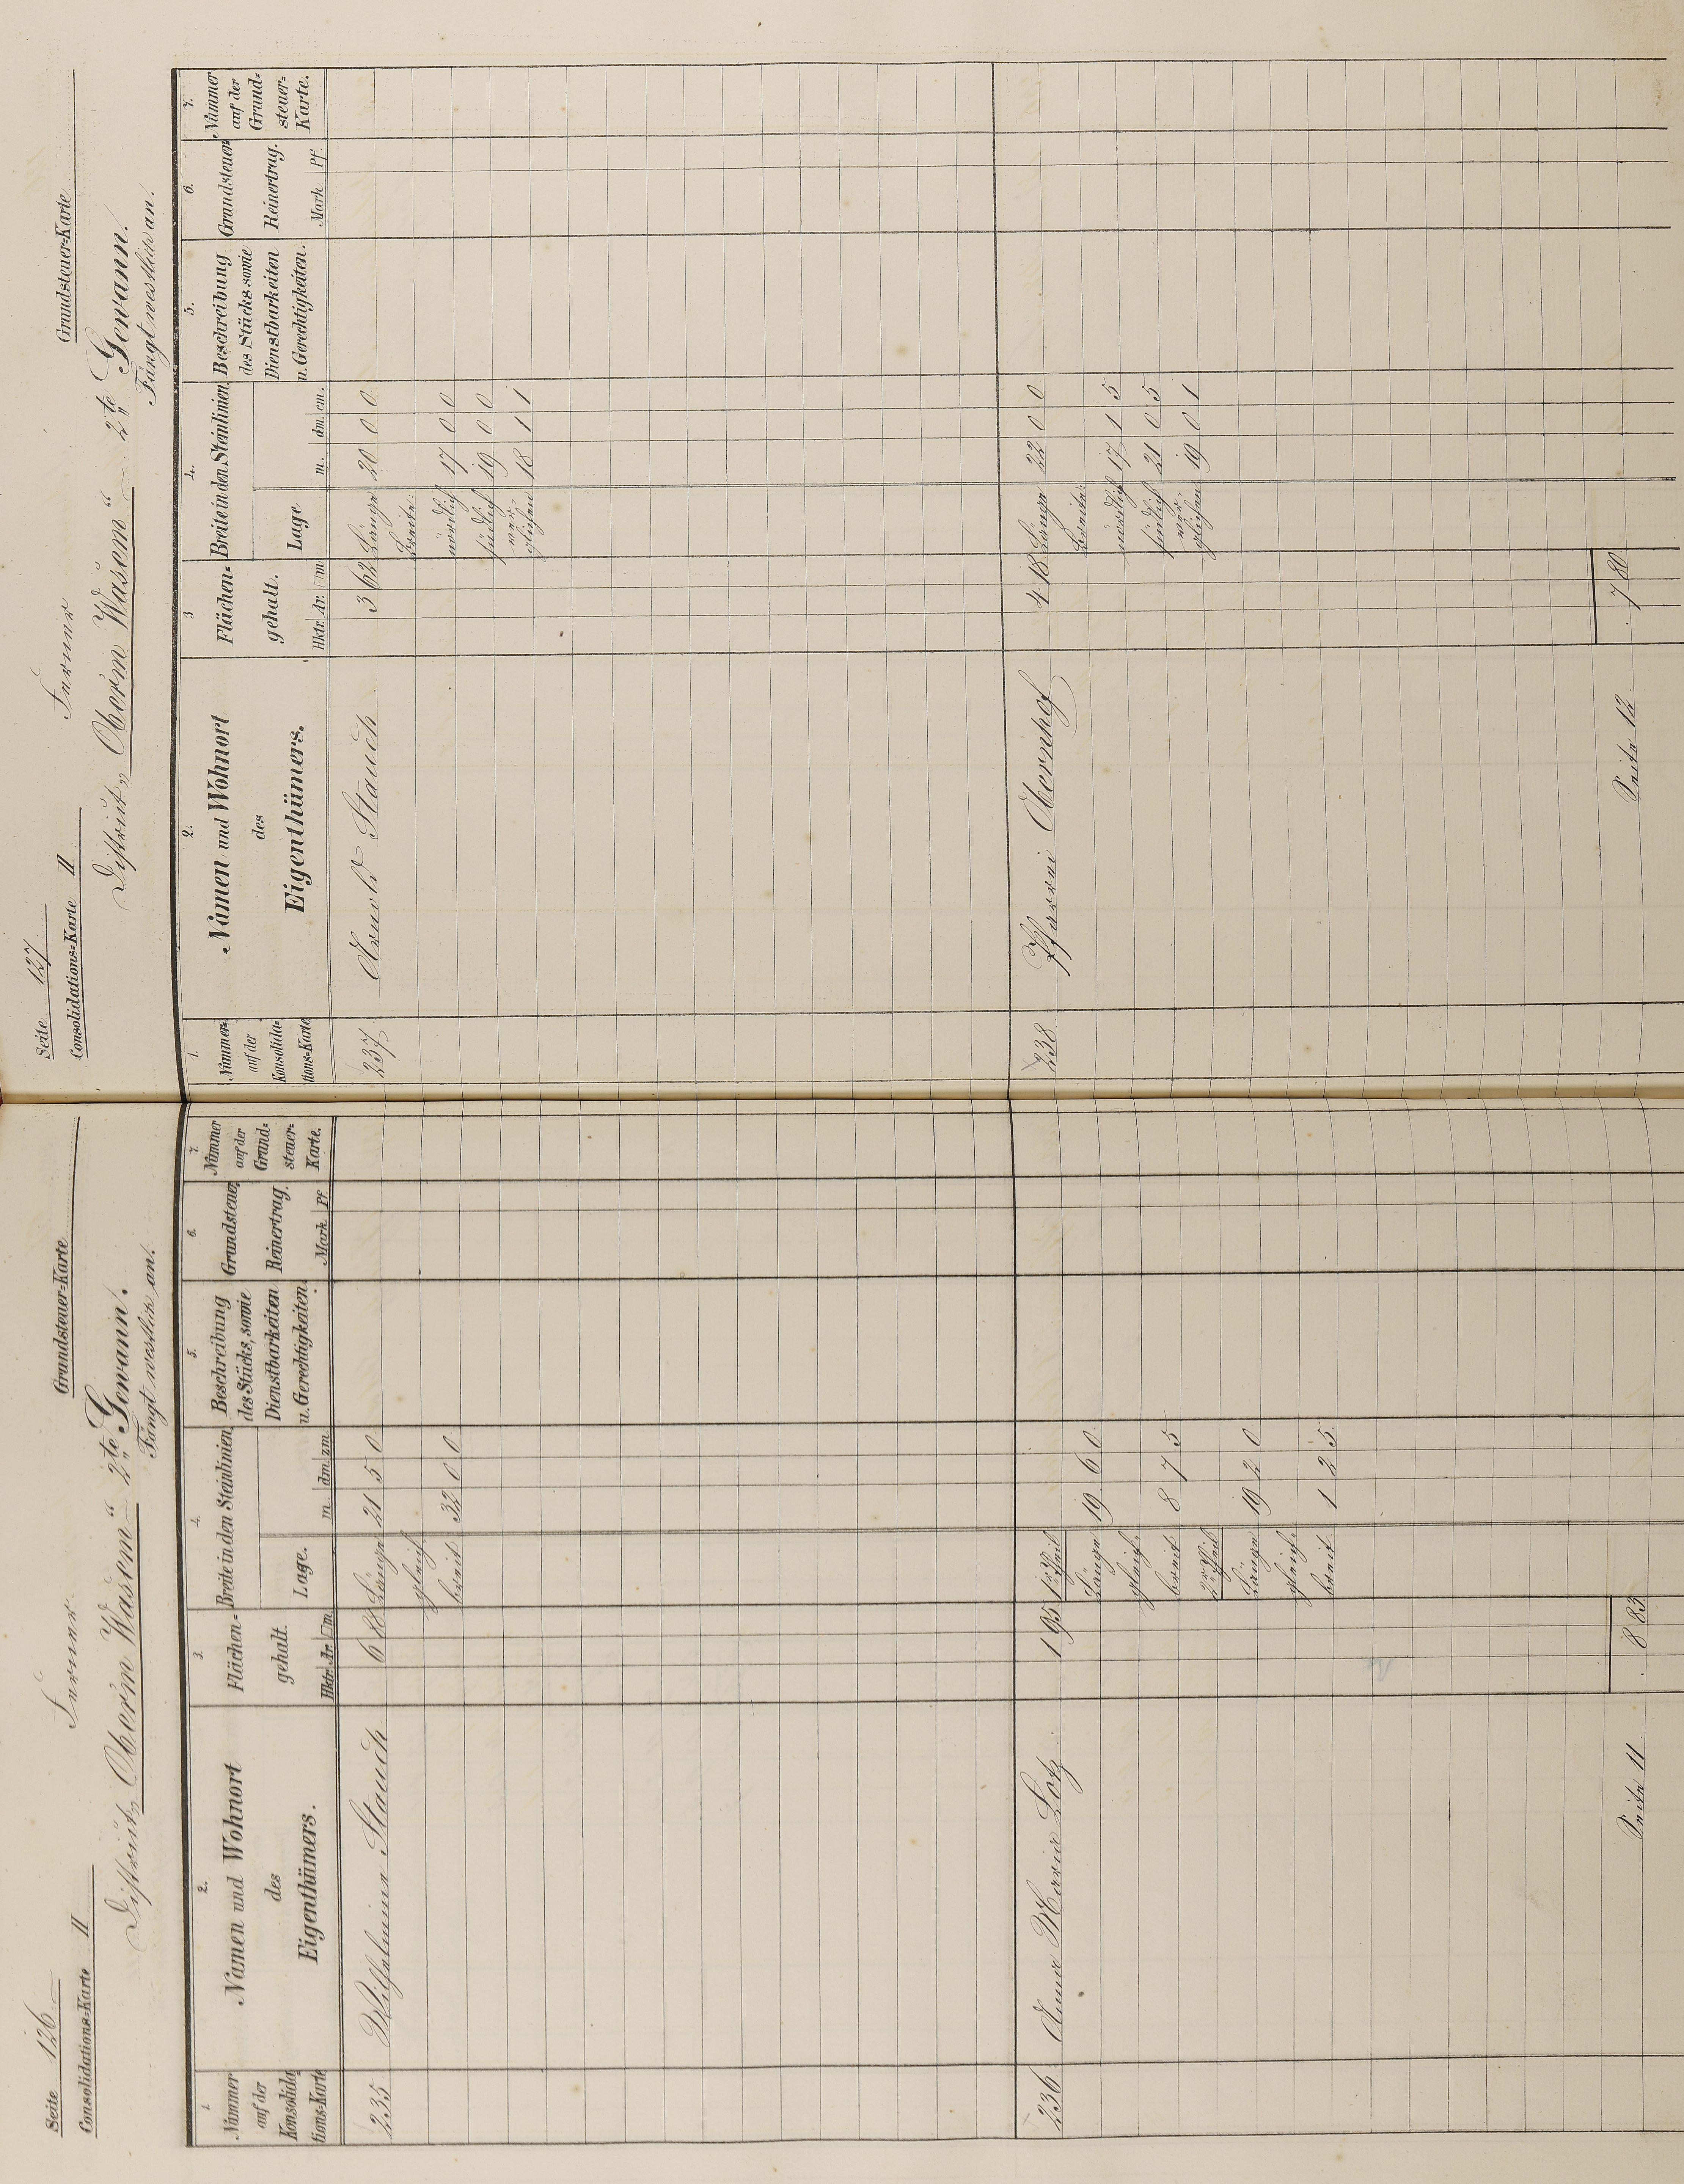 Seite 126
Consolidations=Karte II
Ferner
Grundsteuer=Karte
District „Oberm Wasem“ 2te Gewann.
Fängt westlich an.
1. 2. 3. 4. 5. 6. 7.
Nummer auf der Konsolidations=Karte
Namen und Wohnort des Eigenthümers.
Flächen=gehalt. Hktr. Ar. □m
Breite in den Steinlinien
Lage. m. dm. zm.
Beschreibung des Stücks, sowie Dienstbarkeiten u. Gerechtigkeiten.
Grundsteuer Reinertrag. Mark Pf
Nummer auf der Grund=steuer=Karte.
235 Wilhelmine Stauch 6 88 Länge 21 5 0
gleich
breit 32 0 0
236 Anna Maria Lotz 1 95 1r Theil
Länge 19 6 0
gleich=
breit 8 7 5
2r Theil
Länge 19 2 0
gleich=
breit 1 2 5
Seite 11 8 83
Seite 127
Consolidations=Karte II
Ferner
Grundsteuer=Karte
District „Oberm Wasem“ 2te Gewann.
Fängt westlich an.
1. 2. 3 4. 5. 6. 7.
Nummer auf der Konsolida=tions=Karte
Namen und Wohnort des Eigenthümers.
Flächen=gehalt. Hktr. Ar. □m
Breite in den Steinlinien
Lage m. dm. cm.
Beschreibung des Stücks sowie Dienstbarkeiten u. Gerechtigkeiten.
Grundsteuer Reinertrag. Mark Pf
Nummer auf der Grund=steuer=Karte.
237 Arnold Stauch 3 62 Länge 20 0 0
Breite:
nördlich 17 0 0
südlich 19 0 0
ver=
glichen 18 1 1
238 Pfarrei Obernhof 4 18 Länge 22 0 0
Breite:
nördlich 17 1 5
südlich 21 0 5
ver=
glichen 19 0 1
Seite 12 7 80